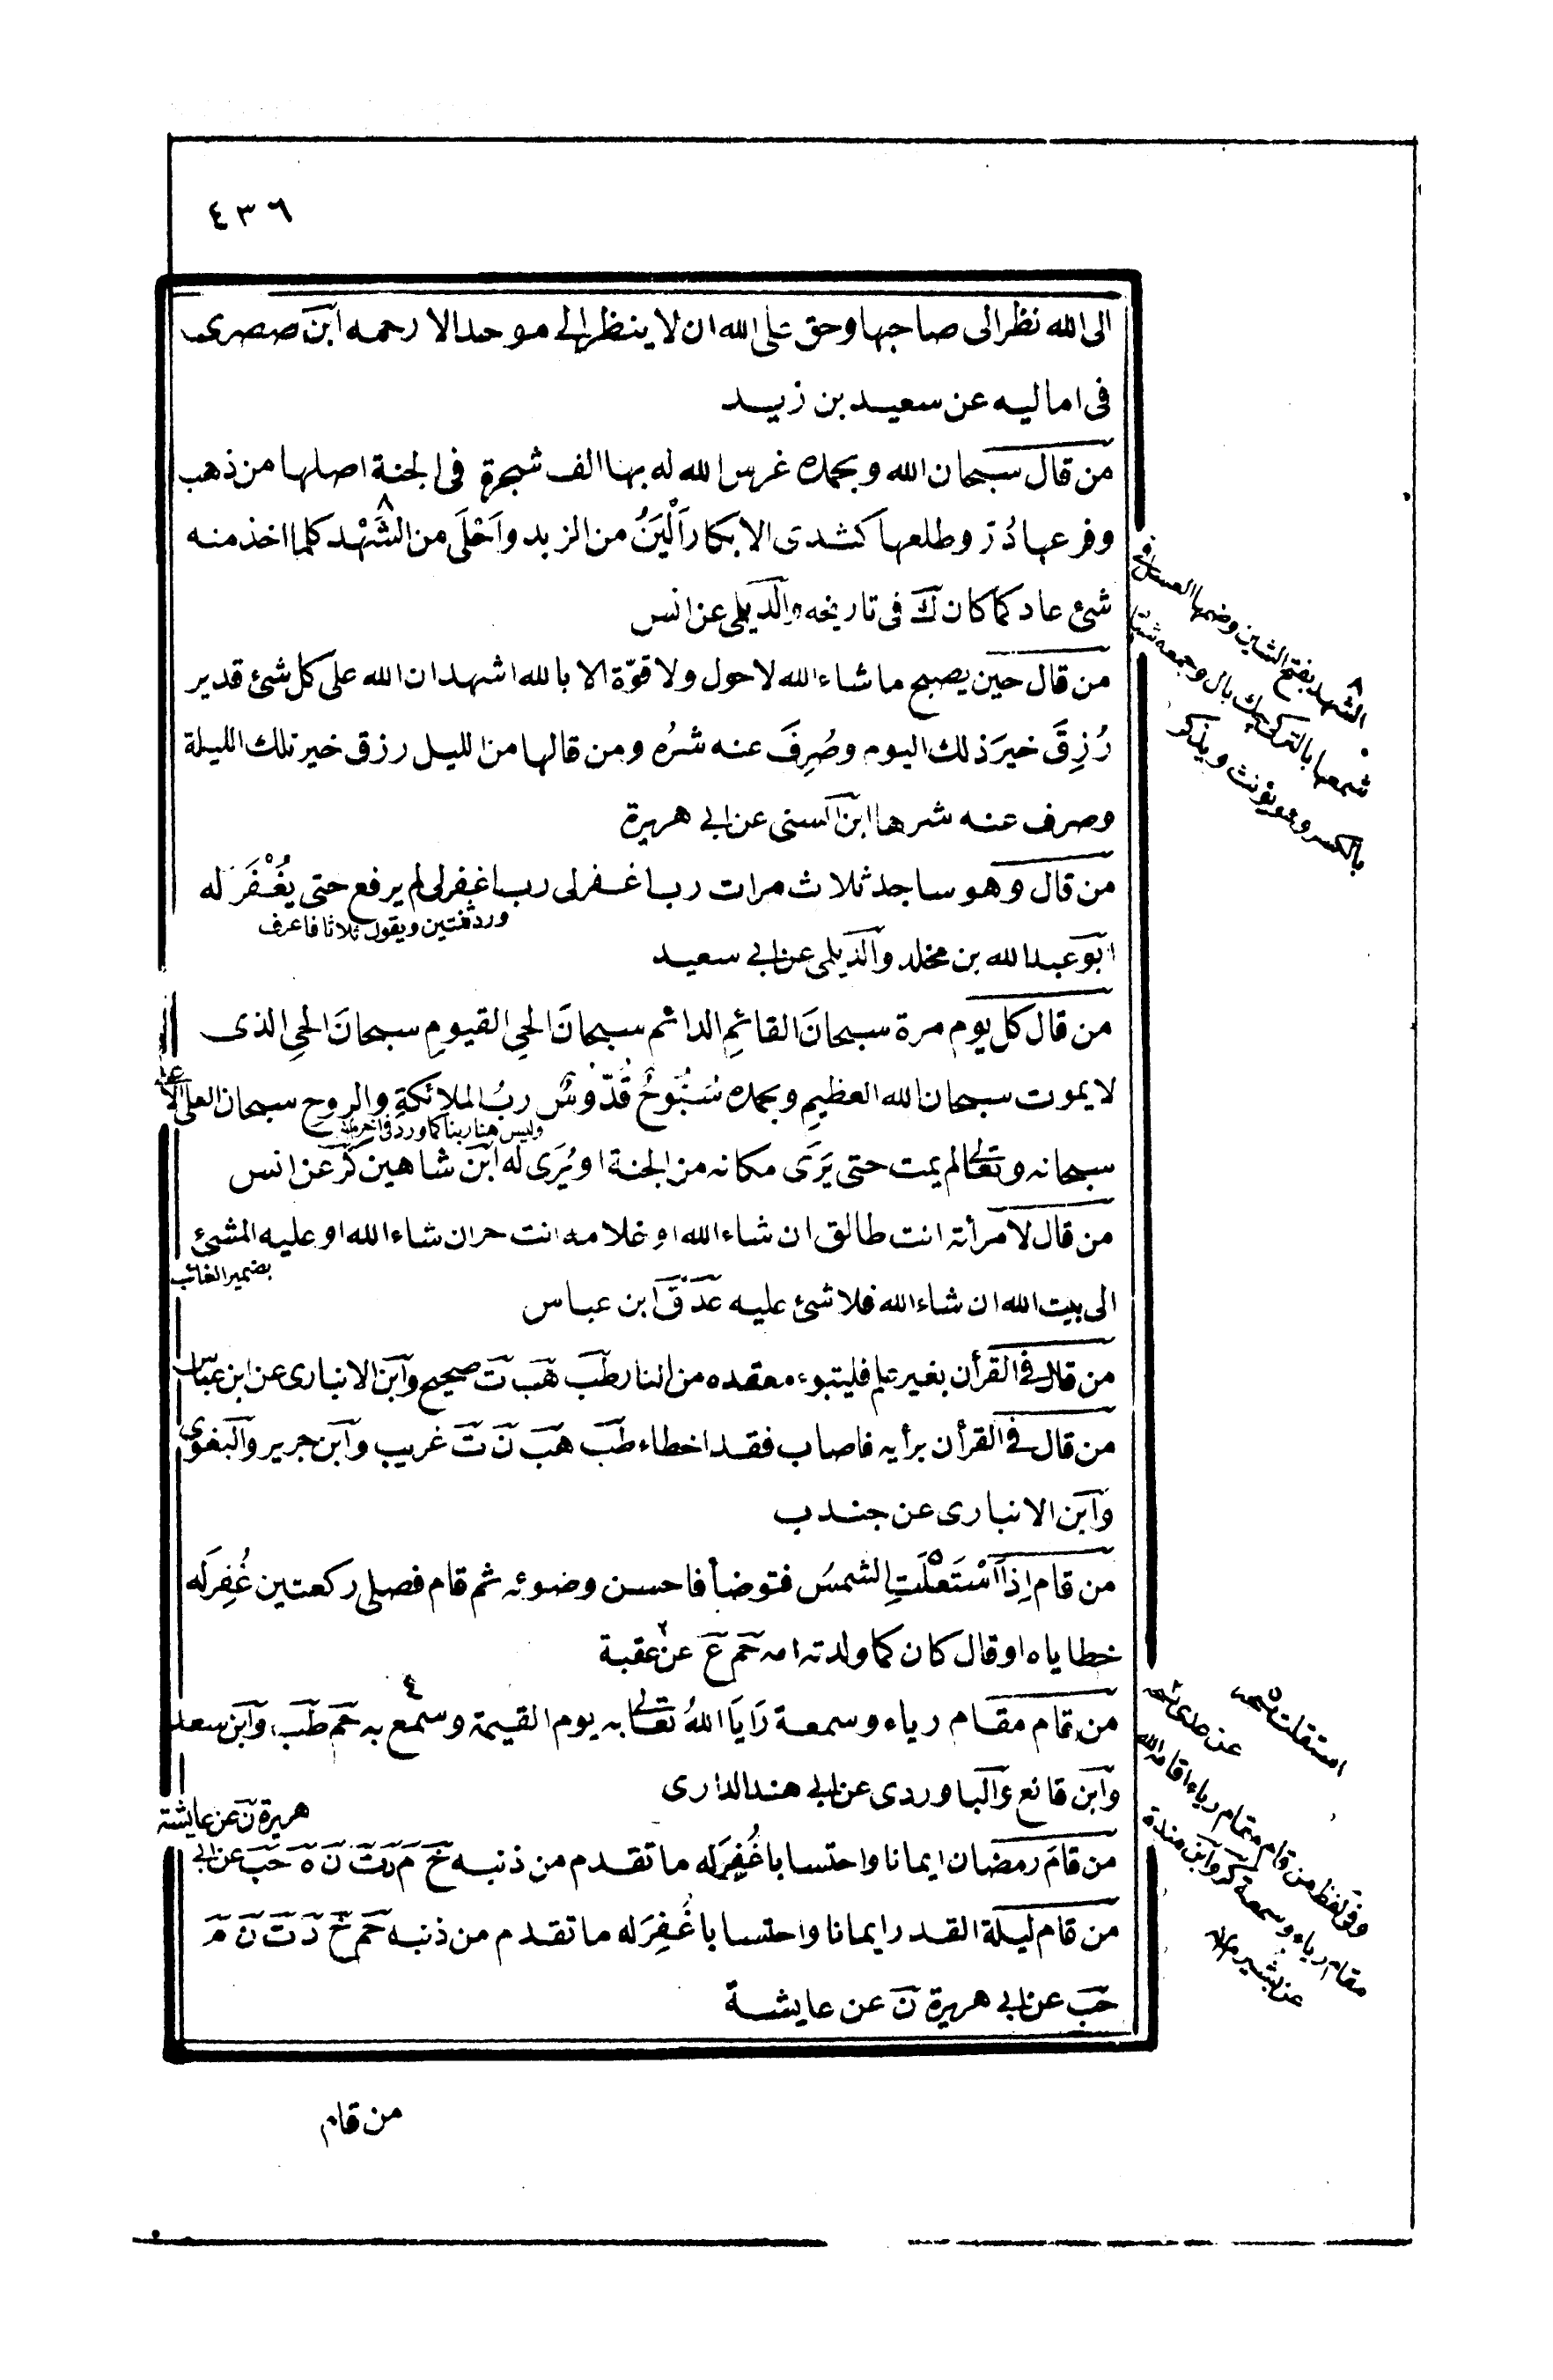 ٤٣٦
الى الله نظر الى صاحبها وحق على الله ان لا ينظر الى موحد الا رحمه ابن صصرى
فى اماليه عن سعيد بن زيد
من قال سبحان الله وبحمده غرس الله له بها الف شجرة فى الجنة اصلها من ذهب
وفرعها دُرّ وطلعها كثدى الابكار اَلْيَنُ من الزبد واَحْلَى من الشَّهْد كلما اخذ منه
شئ عاد كما كان ك فى تاريخه والديلمى عن انس
من قال حين يصبح ما شاء الله لا حول ولا قوّة الا بالله اشهد ان الله على كل شئ قدير
رُزِقَ خيرَ ذلك اليوم وصُرِفَ عنه شرُه ومن قالها من الليل رزق خير تلك الليلة
وصرف عنه شرها ابن السنى عن ابى هريرة
من قال وهو ساجد ثلاث مرات رب اغفرلى رب اغفرلى لم يرفع حتى يُغْفَرَ له
ورد ثنتين ويقول ثلاثا فاعرف
ابو عبد الله بن مخلد والديلمى عن ابى سعيد
من قال كل يوم مرة سبحانَ القائمِ الدائم سبحانَ الحىِ القيومِ سبحانَ الحىِ الذى
لا يموت سبحان الله العظيمِ وبحمده سُبُّوحٌ قُدّوسٌ ربُ الملائكةِ والروحِ سبحان العلى الاعلى
وليس هنا ربنا كما ورد فى اخر
سبحانه وتعالى لم يمت حتى يَرَى مكانه من الجنة او يُرَى له ابن شاهين كر عن انس
من قال لامرأته انت طالق ان شاء الله او غلامه انت حر ان شاء الله او عليه المشئ
بضمير الغائب
الى بيت الله ان شاء الله فلا شئ عليه عد ق ابن عباس
من قال فى القرأن بغير علم فليتبوء مقعده من النار طب هب ت صحيح وابن الانبارى عن ابن عباس
من قال فى القرأن برأيه فاصاب فقد اخطاء طب هب ن ت غريب وابن جرير والبغوى
وابن الانبارى عن جندب
من قام اِذا اسْتَعْلَتِ الشمسُ فتوضأ فاحسن وضوئه ثم قام فصلى ركعتين غُفِرَ له
خطاياه او قال كان كما ولدته امه حم ع عن عقبة
من قام مقام رياء وسمعة رَايَا اللهُ تعالى به يوم القيمة وسمع به حم طب وابن سعد
وابن قانع والباوردى عن ابى هند الدارى
هريرة ن عن عايشة
من قامَ رمضان ايمانا واحتسابا غُفِرَ له ما تقدم من ذنبه خ م د ت ن ه حب عن ابى
من قام ليلة القدر ايمانا واحتسابا غُفِرَ له ما تقدم من ذنبه حم خ د ت ن م
حب عن ابى هريرة ن عن عايشة
الشهد بفتح الشين وضمها العسل فى
شمعها بالتركى بال وجمعه
بالكسر وهو يؤنث ويذكر
استقلت نسخه
عن عدى نسخه
وفى لفظ من قام مقام رياء اقامه الله
مقام رياء وسمعة كر وابن مندة
عن بشير
من قام